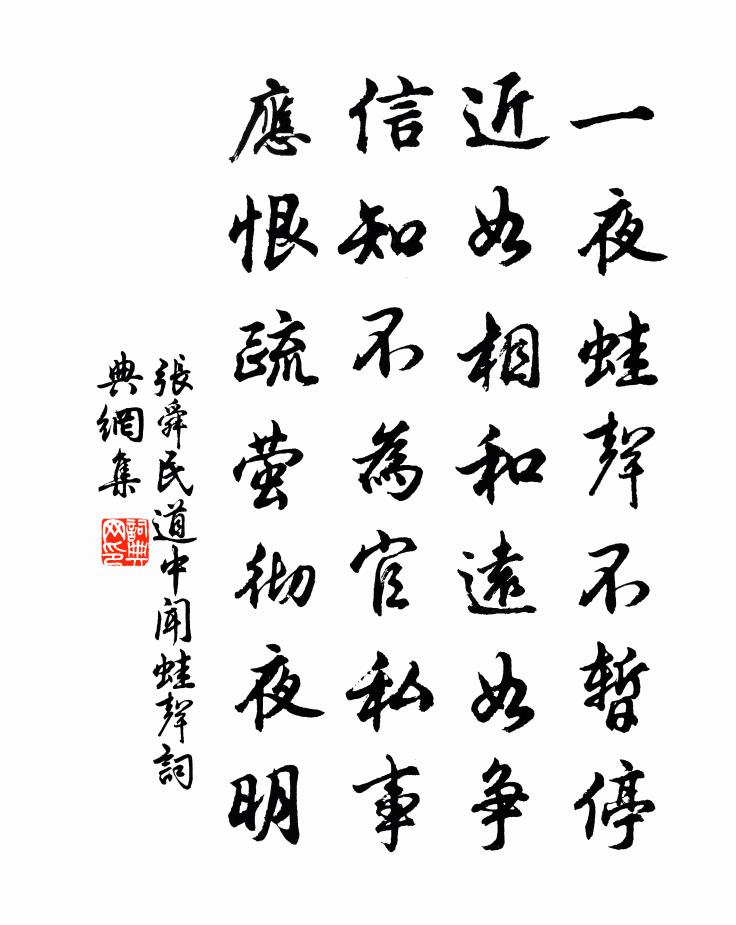 一夜蛙聲不暫停
近如相和遠如争
信知不為官私事
應恨疏萤彻夜明
張舜民道中闻蛙聲詞
典網集
詞典
网印